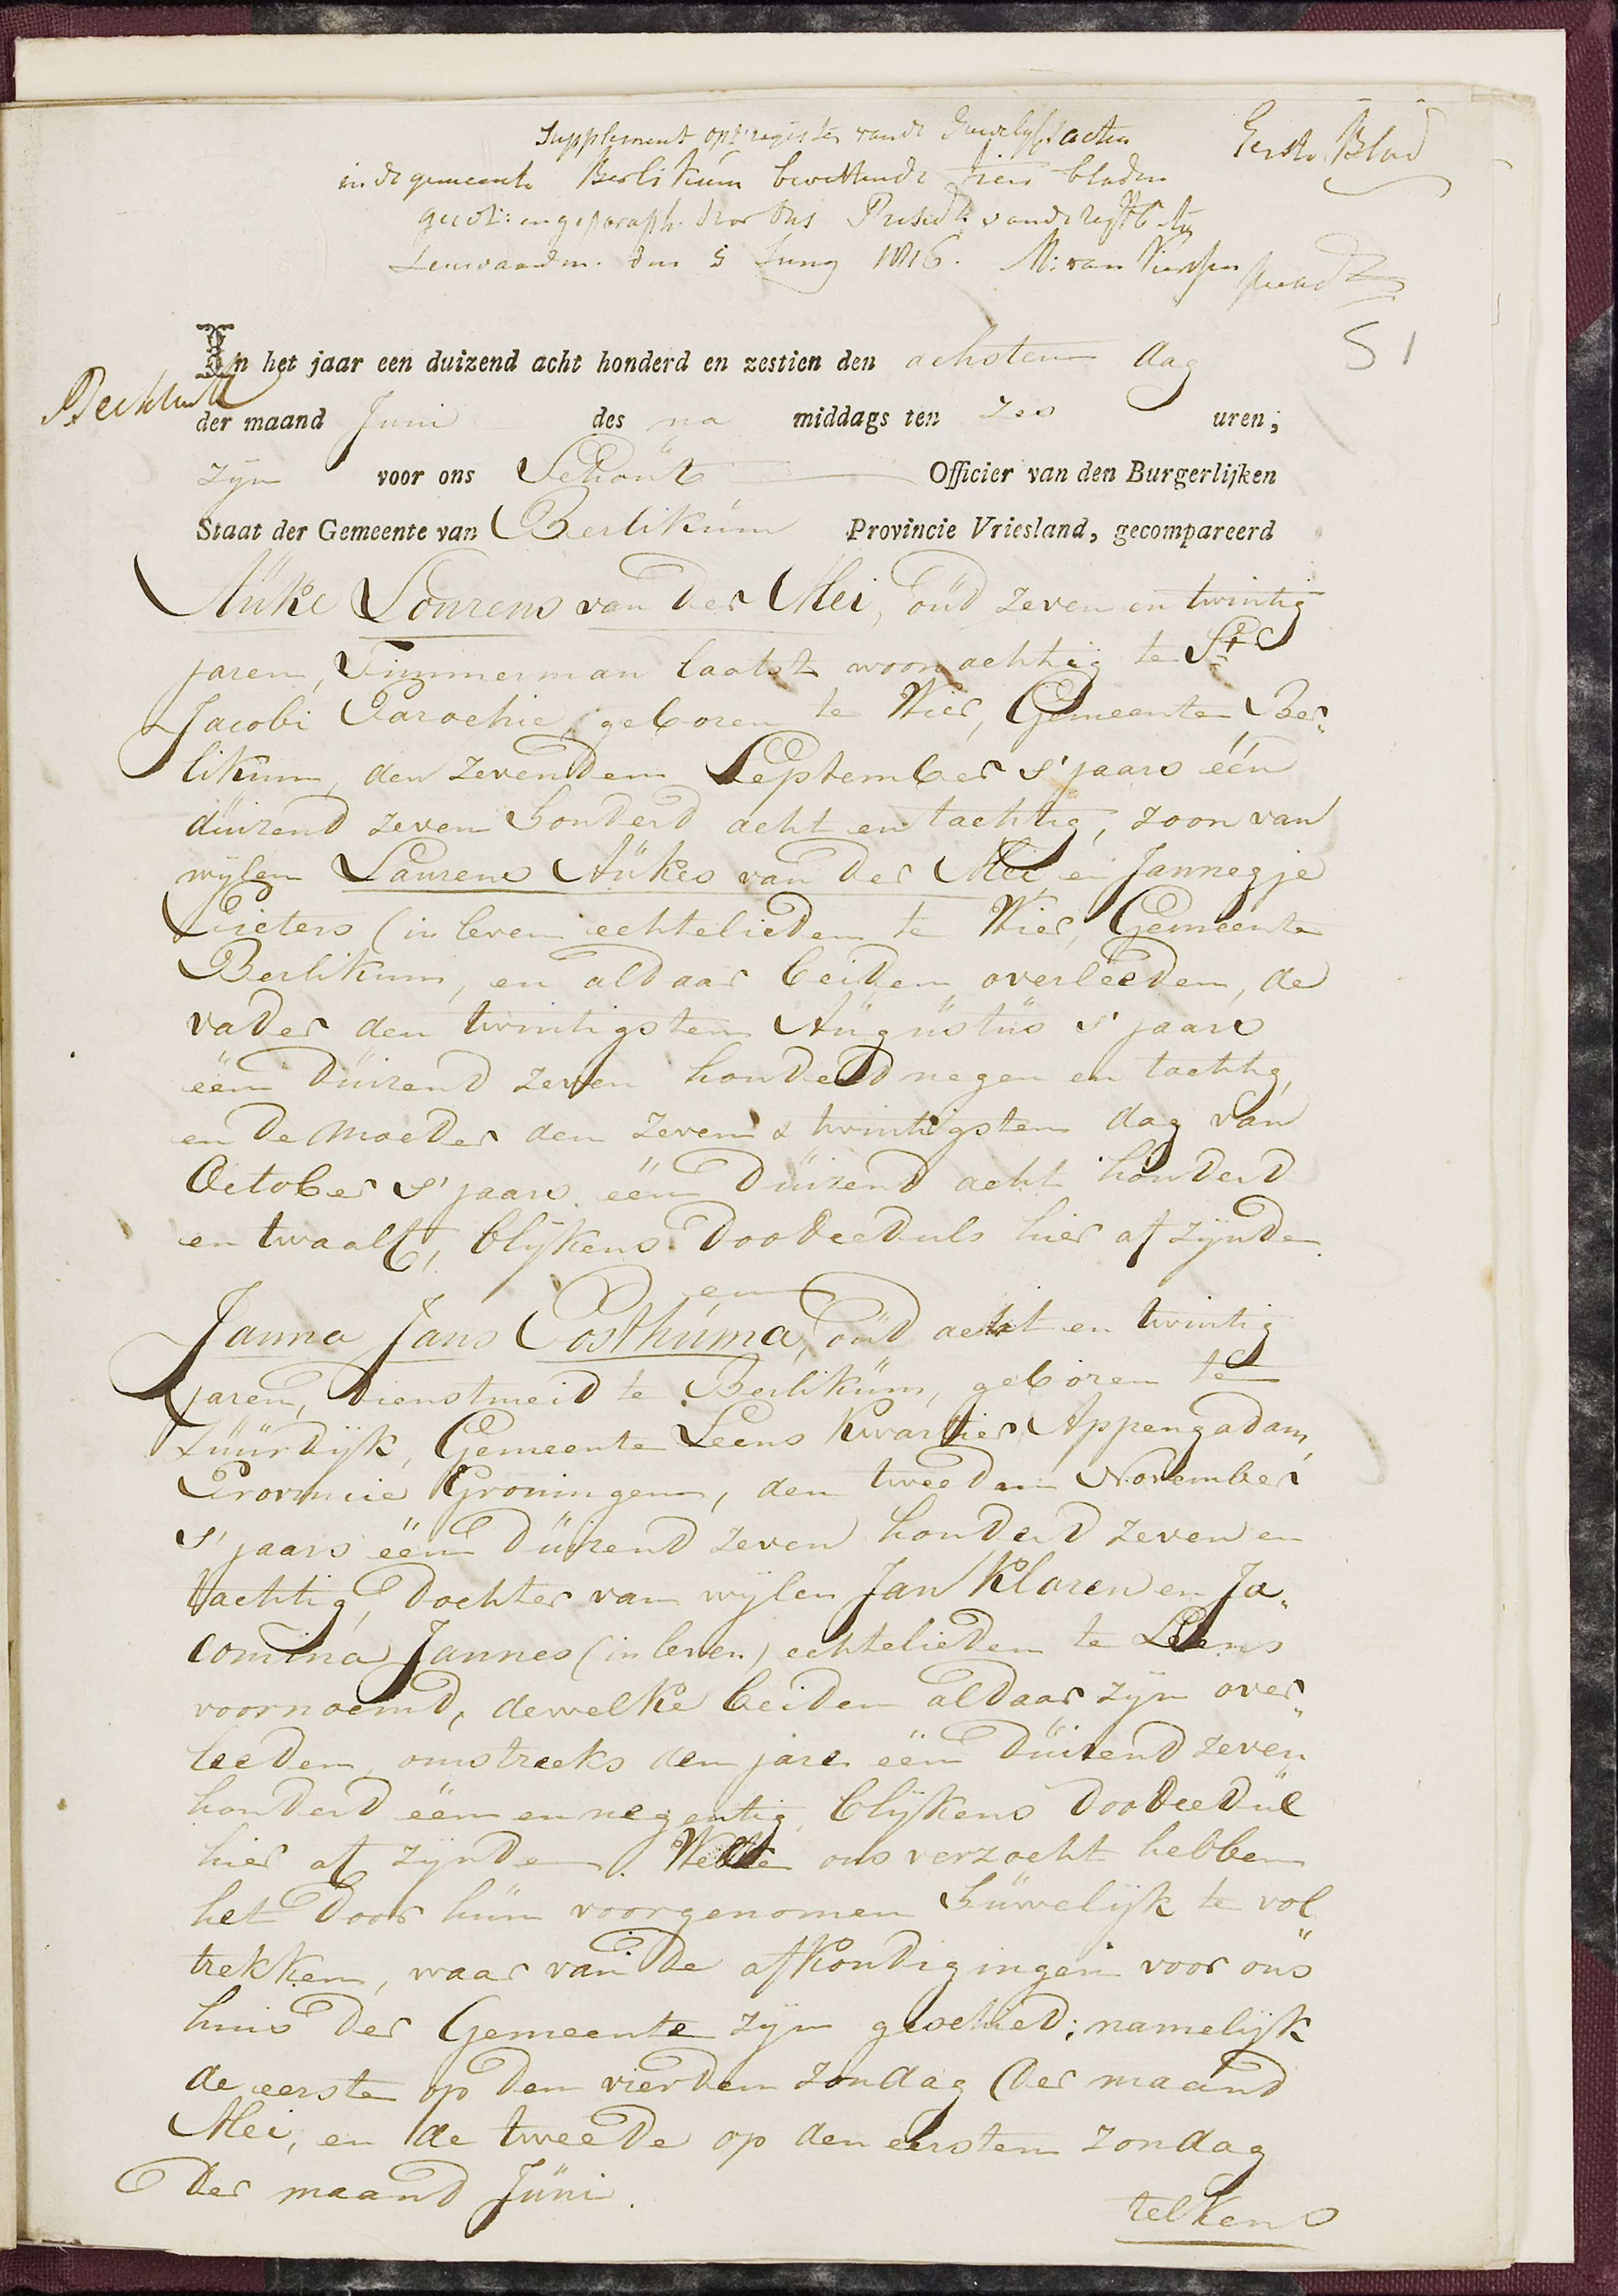 Supplement op 't register van de Huwelijks acten
Eerste Blad
in de gemeente Berlikum bevattende tien bladen
gecot: en geparaph. door Ons Presidt. van de regtb. te
Leeuwaarden. den 5 Juny 1816. M: van
51
In het jaar een duizend acht honderd en zestien den achsten dag
der maand Juni des na middags ten zes uren;
zijn voor ons Schout Officier van den Burgerlijken
Staat der Gemeente van Berlikum Provincie Vriesland, gecompareerd
Auke Lourens van der Mei, oud zeven en twintig
jaren, Timmerman laatst woonachtig te St
Jacobi Parochie, geboren te Wier, Gemeente Ber„
likum, den zevenden September s'jaars één
duizend zeven honderd acht en tachtig, zoon van
wijlen Laurens Aukes van der Mei en Jannegje
Pieters (in leven echtelieden te Wier, Gemeente
Berlikum, en aldaar beiden overleeden, de
vader den twintigsten Augustus s'jaars
één duizend zeven honderd negen en tachtig,
en de moeder den zeven & twintigsten dag van
October s'jaars één duizend acht honderd
en twaalf, blijkens doodceduls hier af zijnde.
en
Janna Jans Posthuma, oud acht en twintig
jaren, dienstmeid te Berlikum, geboren te
Zuurdijk, Gemeente Leens Kwartier Appengadam,
Provincie Groningen, den tweeden November
s'jaars één duizend zeven honderd zeven en
tachtig, dochter van wijlen Jan Klaren en Ja„
comina Jannes (in leven) echtelieden te Leens
voornoemd, dewelke beiden aldaar zijn over„
leeden, omstreeks den jare één duizend zeven
honderd één en negentig, blijkens doodcedul
hier af zijnde. Welke ons verzocht hebben
het door hun voorgenomen huwelijk te vol„
trekken, waar van de afkondigingen voor ons
huis der Gemeente zijn geschied; namelijk
de eerste op den vierden zondag der maand
Mei, en de tweede op den eersten zondag
der maand Juni.
telkens